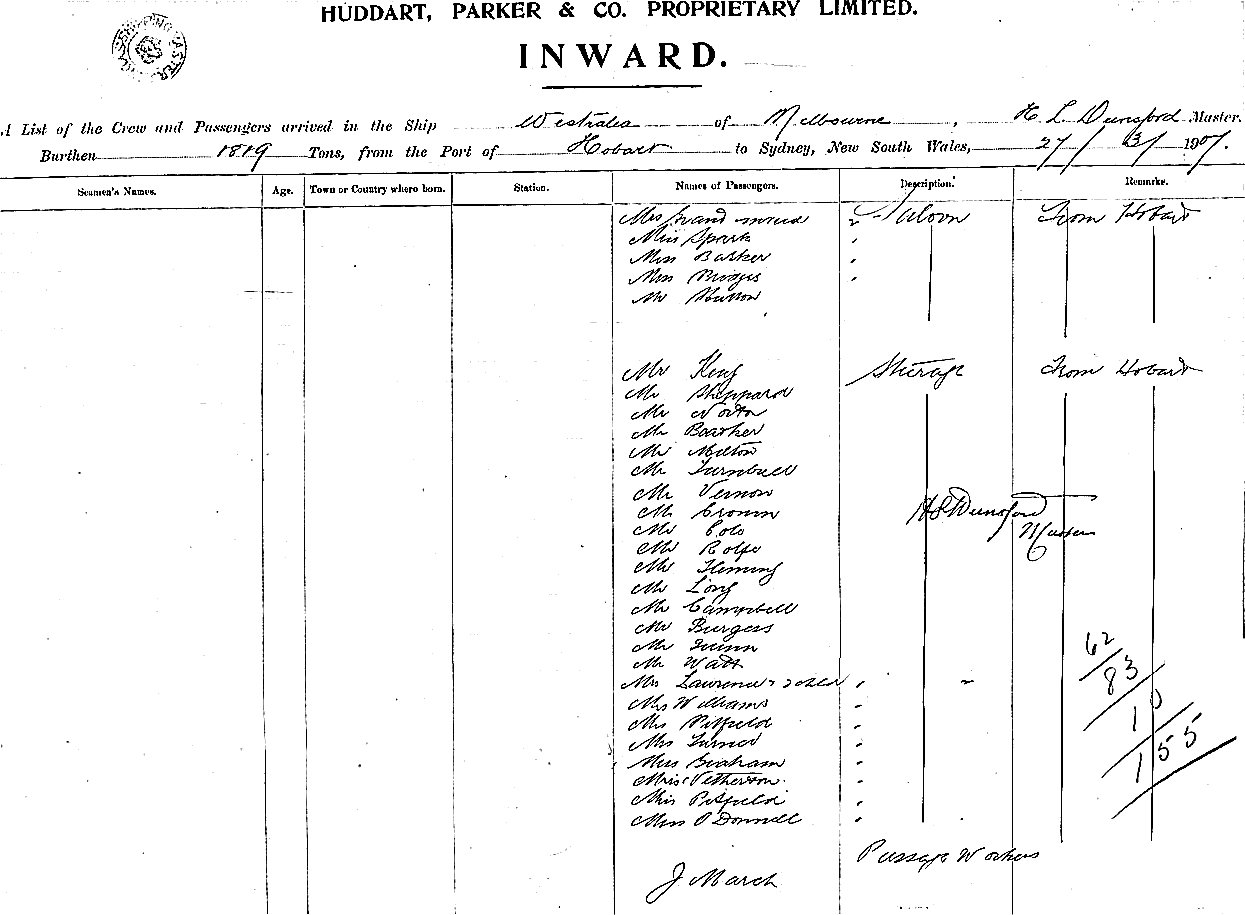 HUDDART, PARKER & CO. PROPRIETARY LIMITED.
SHIPPING MASTER
INWARD.
A List of the Crew and Passengers arrived in the Ship Westralia of Melbourne, H. L. Dunsford Master.
Burthen 1819 Tons, from the Port of Hobart to Sydney, New South Wales, 27/ 3/ 1907.
Seamen's Names. Age. Town or Country where born. Station. Names of Passengers. Description. Remarks.
Mrs Saloon From Hobart
Miss Spark
Miss Barker
Miss Bridges
Mr Hutton
Mr King Steerage From Hobart
Mr Sheppard
Mr North
Mr Boarker
Mr Milton
Mr Turnbull
Mr Vernon
Mr Cronin H L Dunsford
Mr Cole Master
Mr Rolfe
Mr Fleming
Mr Long
Mr Campbell
Mr Burgess
Mr Quinn
Mr Watt 62
Mrs Lawrence & child 83
Mrs Williams 10
Mrs Pitfield
Mrs Turner 155
Miss Graham
Miss Netherton
Miss Pitfield
Miss O'Donnell
Passage Workers
J March